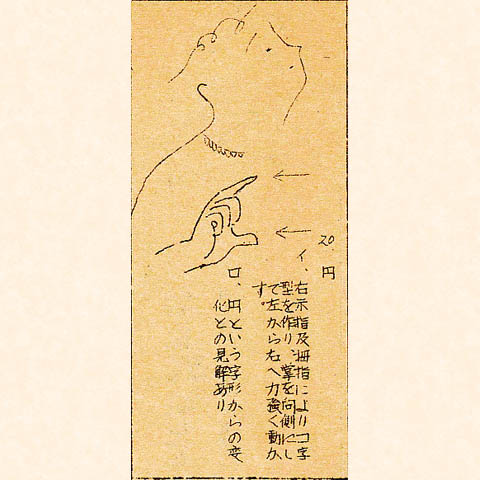 20.
円
イ、右示指及拇指によりコ字
型を作り、掌を向側にし
て左から右へ力強く動か
す。
ロ、円という字形からの変
化との見解あり